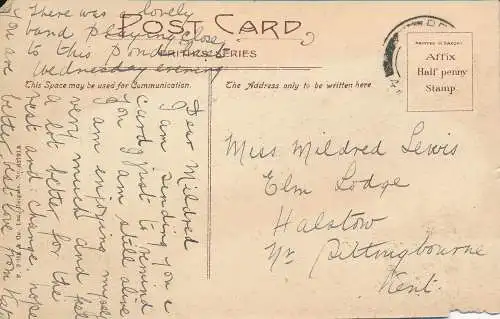 There was a lovely
band playing close
to this pond
Wednesday evening
POST CARD
SERIES
This Space may be used for Communication.
The Address only to be written here
PRINTED IN SAXONY
Affix
Half penny
Stamp.
Dear Mildred
I am sending you a
card just to remind
you I am still alive
I am enjoying myself
very much and feel
a lot better for the
rest and change. hope
you are better best love from
Miss Mildred Lewis
Elm Lodge
Halstow
Nr Sittingbourne
Kent.